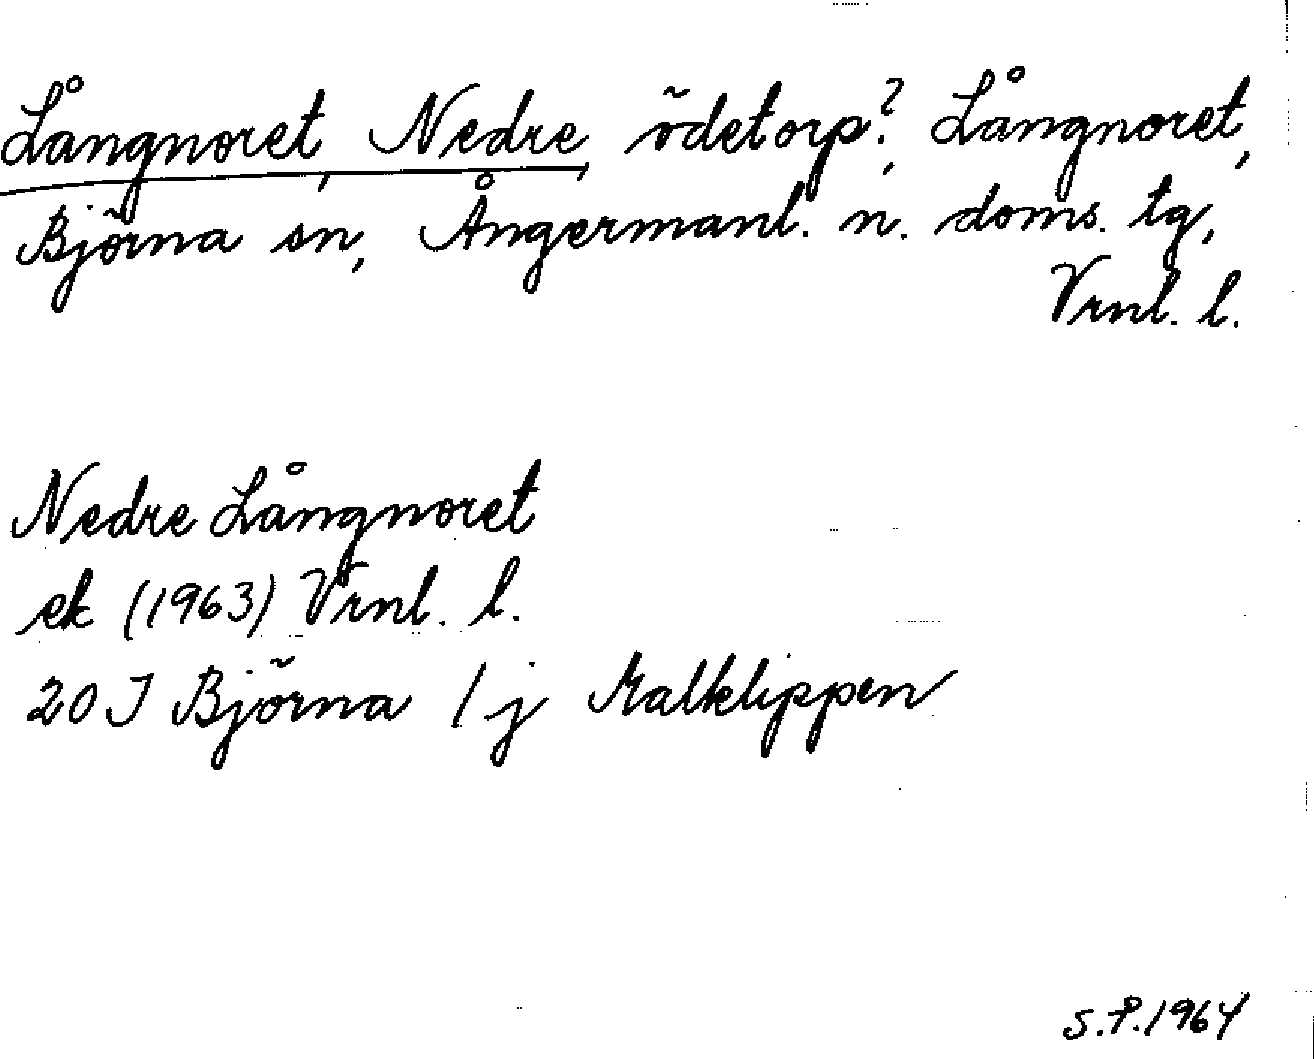 Långnoret, Nedre, ödetorp?, Långnoret,
Björna sn, Ångermanl. n. doms. tg,
Vrnl. l.
Nedre Långnoret
ek (1963) Vrnl. l.
20 J Björna / j Malklippen
S.P. 1964